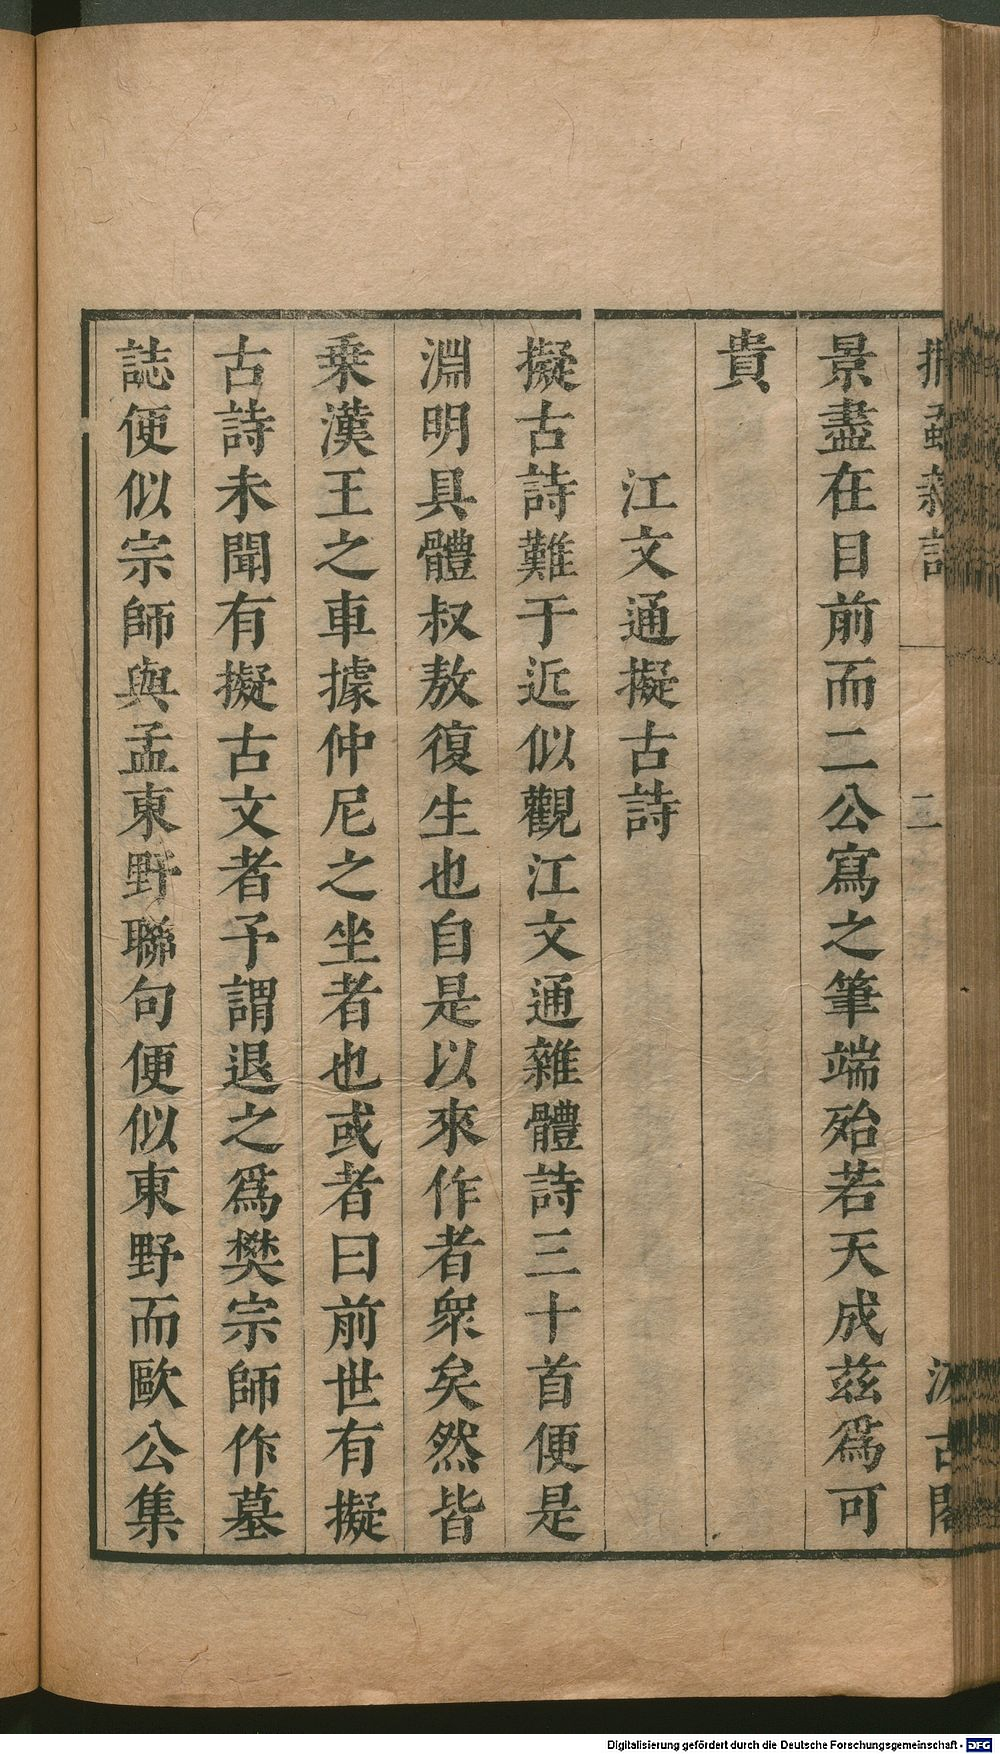 捫蝨新話
二
汲古閣
景盡在目前而二公寫之筆端殆若天成茲爲可
貴
江文通擬古詩
擬古詩難于近似觀江文通雜體詩三十首便是
淵明具體叔敖復生也自是以來作者衆矣然皆
乗漢王之車據仲尼之坐者也或者曰前世有擬
古詩未聞有擬古文者予謂退之爲樊宗師作墓
誌便似宗師與孟東野聯句便似東野而歐公集
Digitalisierung gefördert durch die Deutsche Forschungsgemeinschaft - DFG